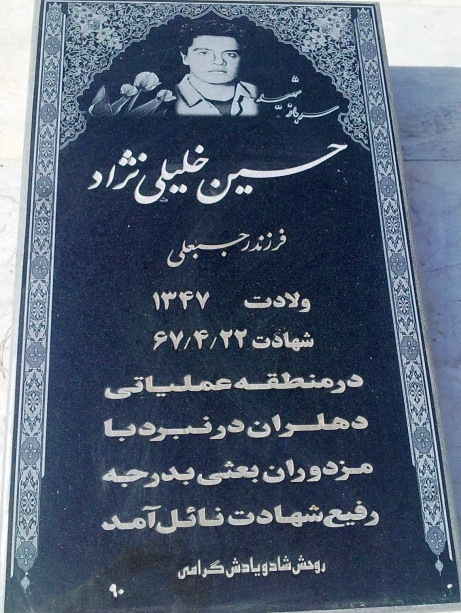 سرباز شهید
حسین خلیلی نژاد
فرزند رجبعلی
ولادت ۱۳۴۷
شهادت ۶۷/۴/۲۲
در منطقه عملیاتی
دهلران در نبرد با
مزدوران بعثی بدرجه
رفیع شهادت نائل آمد
روحش شاد و یادش گرامی
۹۰